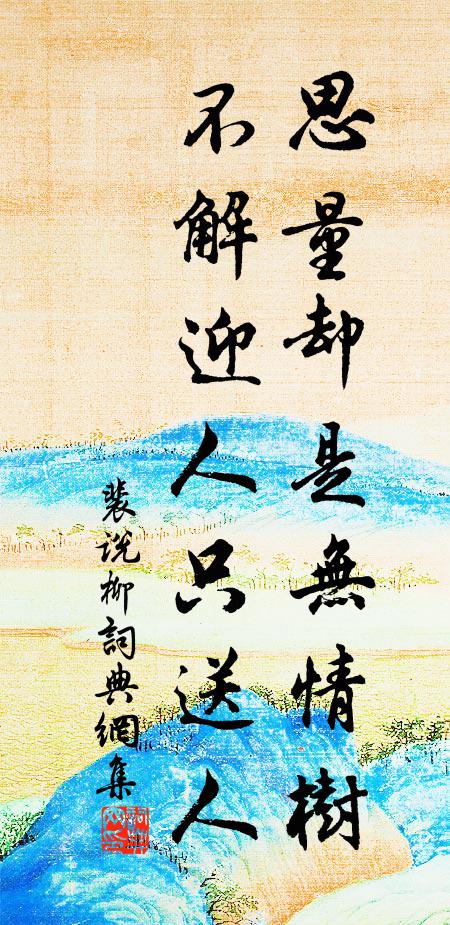 思量却是無情樹
不解迎人只送人
裴说柳詞典網集